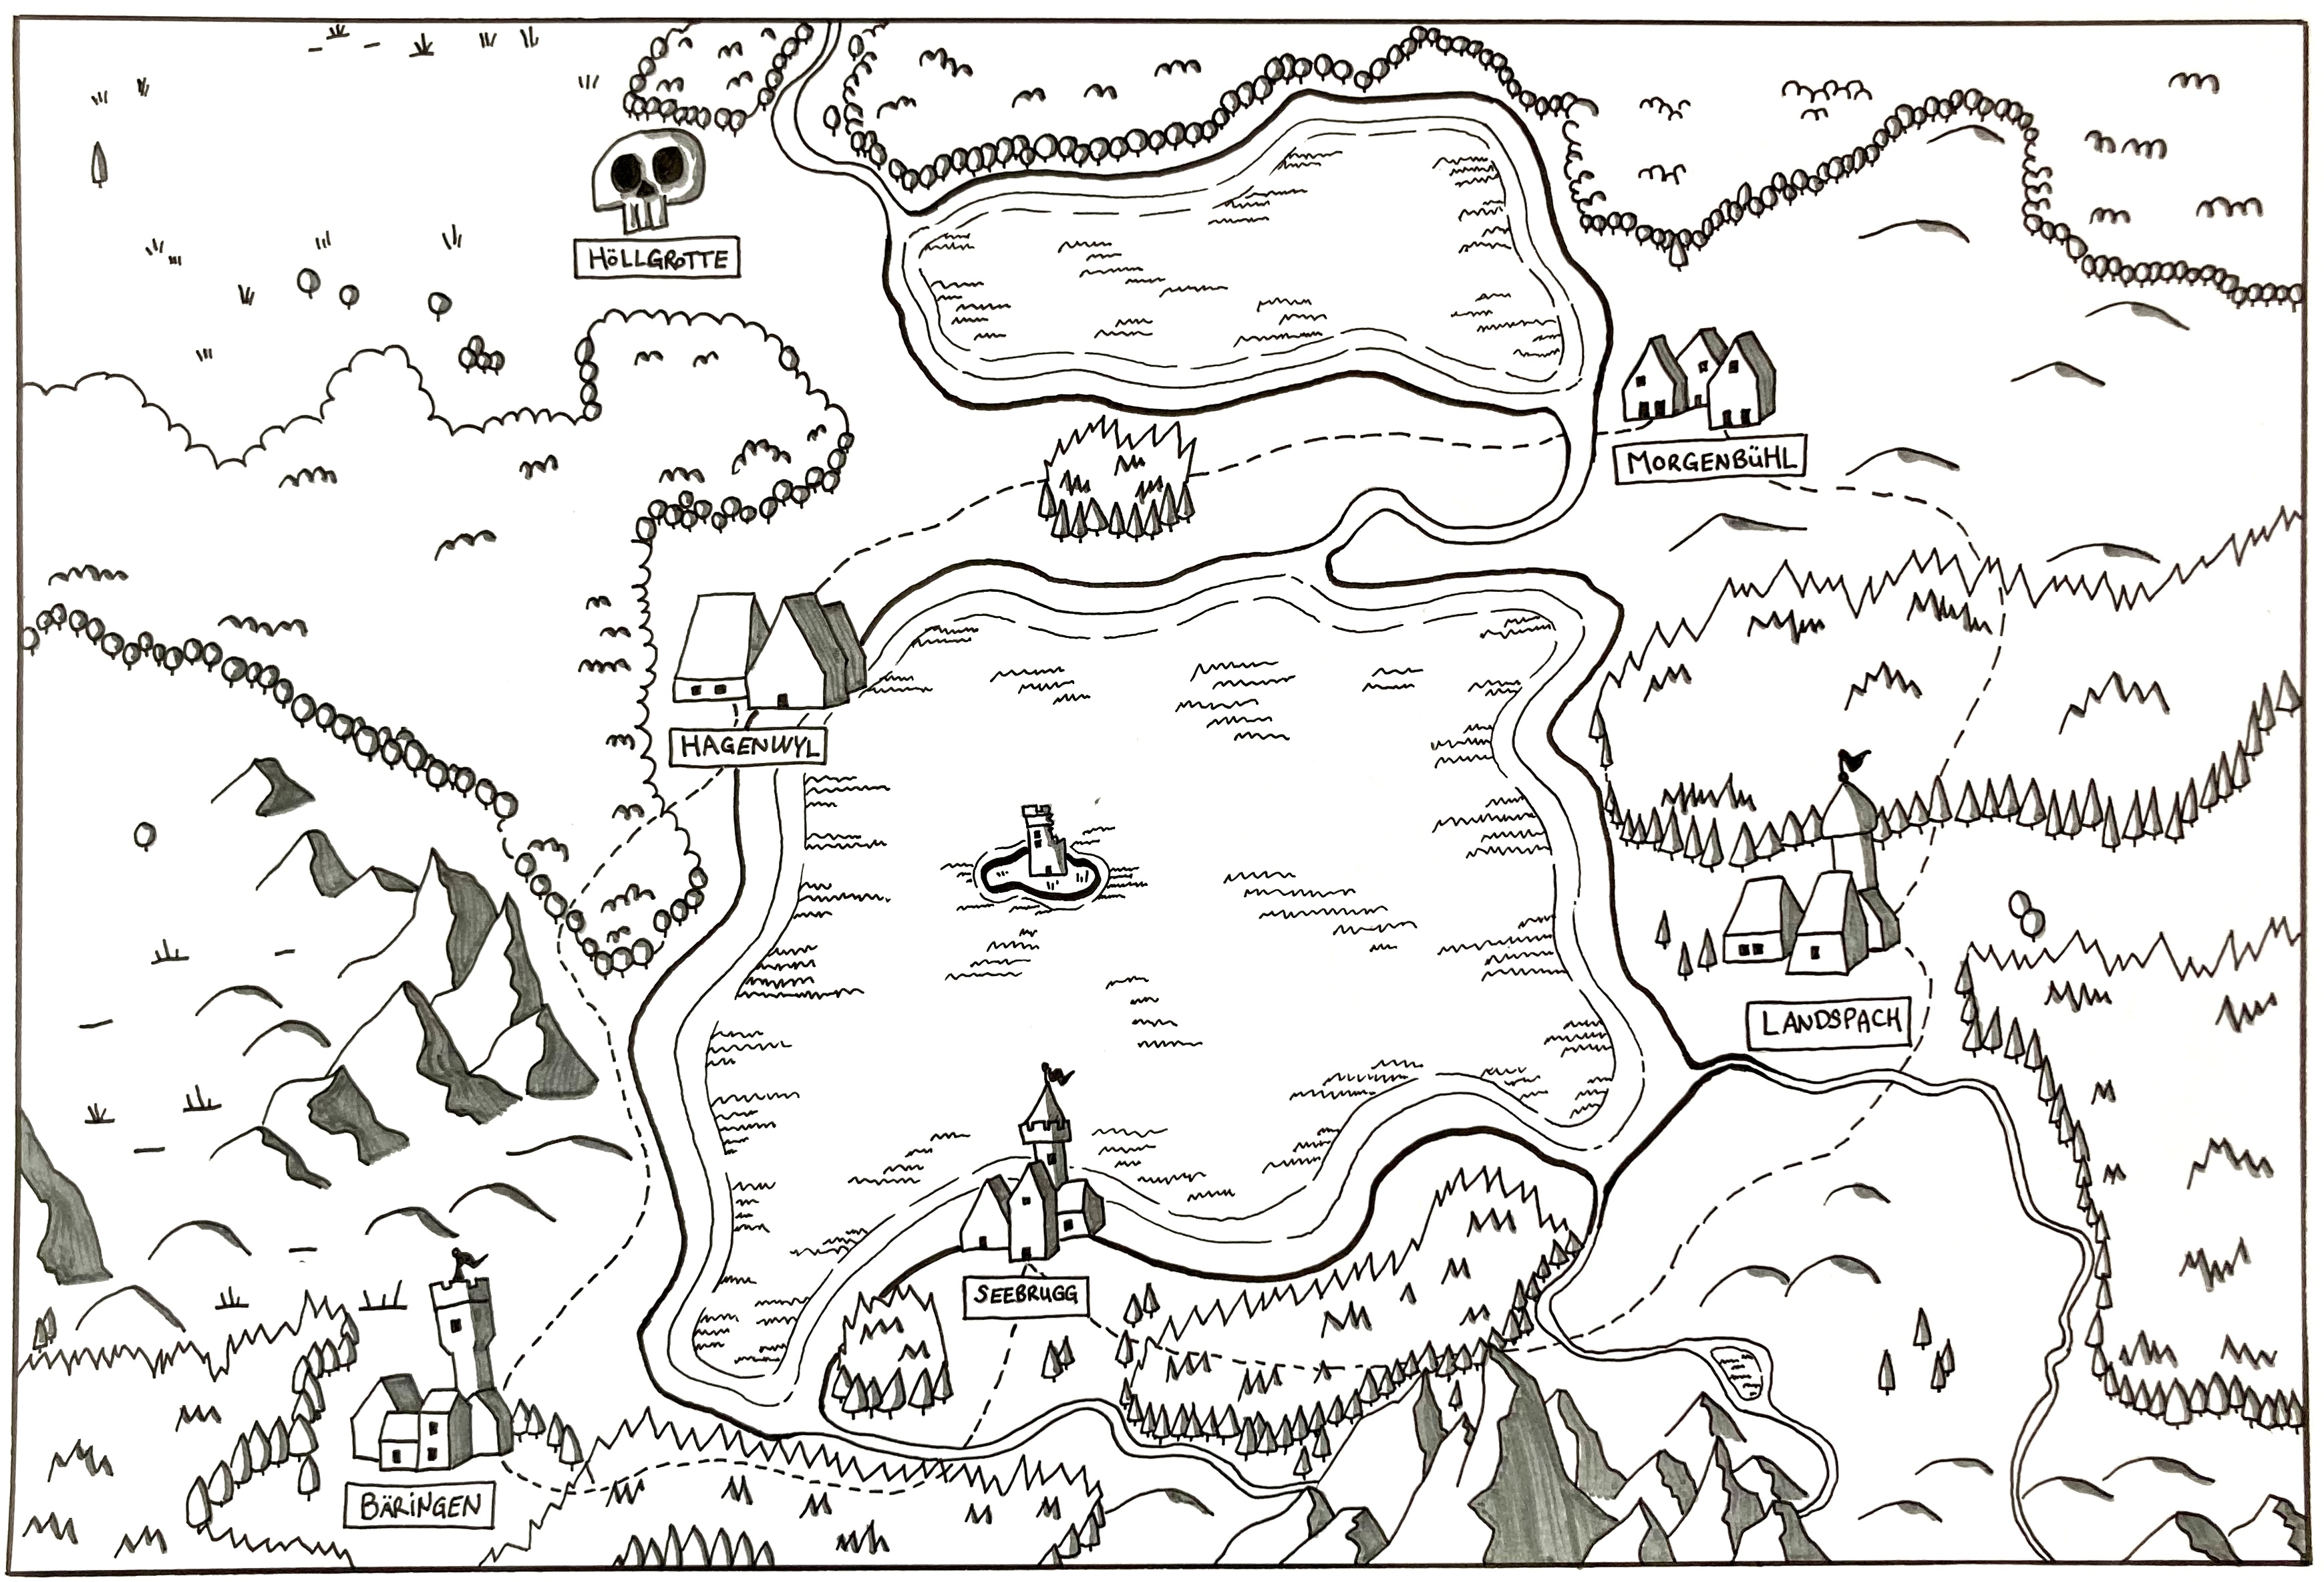 HÖLLGROTTE
MORGENBÜHL
HAGENWYL
LANDSPACH
SEEBRUGG
BÄRINGEN